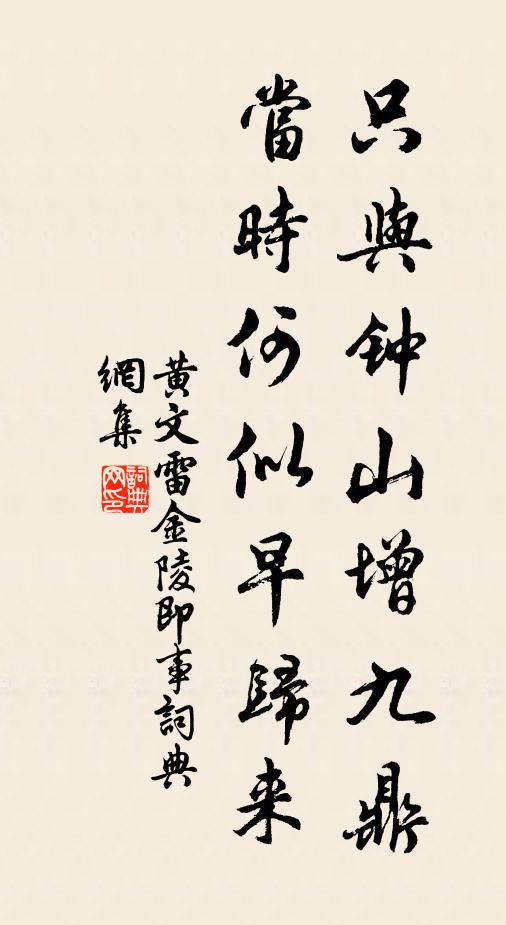 只與钟山增九鼎
當時何似早歸来
黄文雷金陵即事詞典
網集
詞典
网印